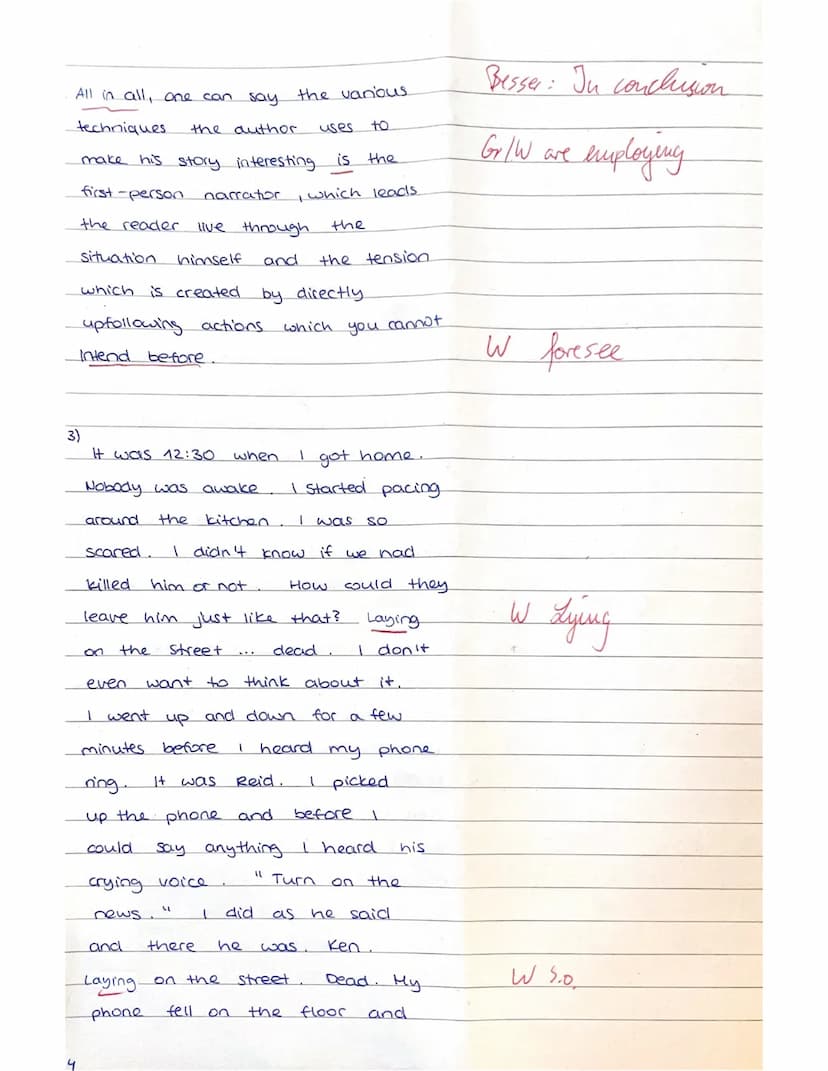 All in all, one can say the various
Besser: In conclusion
techniques the author uses to
make his story interesting is the
Gr/W are employing
first-person narrator, which leads
the reader live through the
situation himself and the tension
which is created by directly
upfollowing actions which you cannot
Intend before.
W foresee
3)
It was 12:30 when I got home.
Nobody was awake. I started pacing
around the kitchen. I was so
scared. I didn't know if we had
killed him or not. How could they
leave him just like that? Laying
W Lying
on the street ... dead. I don't
even want to think about it.
I went up and down for a few
minutes before I heard my phone
ring. It was Reid. I picked
up the phone and before I
could say anything I heard his
crying voice. "Turn on the
news." I did as he said
and there he was. Ken.
Laying on the street. Dead. My
W s.o.
phone fell on the floor and
4